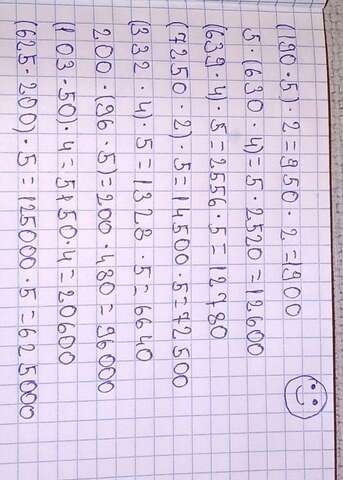 (190 · 5) · 2 = 950 · 2 = 1900
5 · (630 · 4) = 5 · 2520 = 12600
(639 · 4) · 5 = 2556 · 5 = 12780
(7250 · 2) · 5 = 14500 · 5 = 72500
(332 · 4) · 5 = 1328 · 5 = 6640
200 · (96 · 5) = 200 · 480 = 96000
(103 · 50) · 4 = 5150 · 4 = 20600
(625 · 200) · 5 = 125000 · 5 = 625000